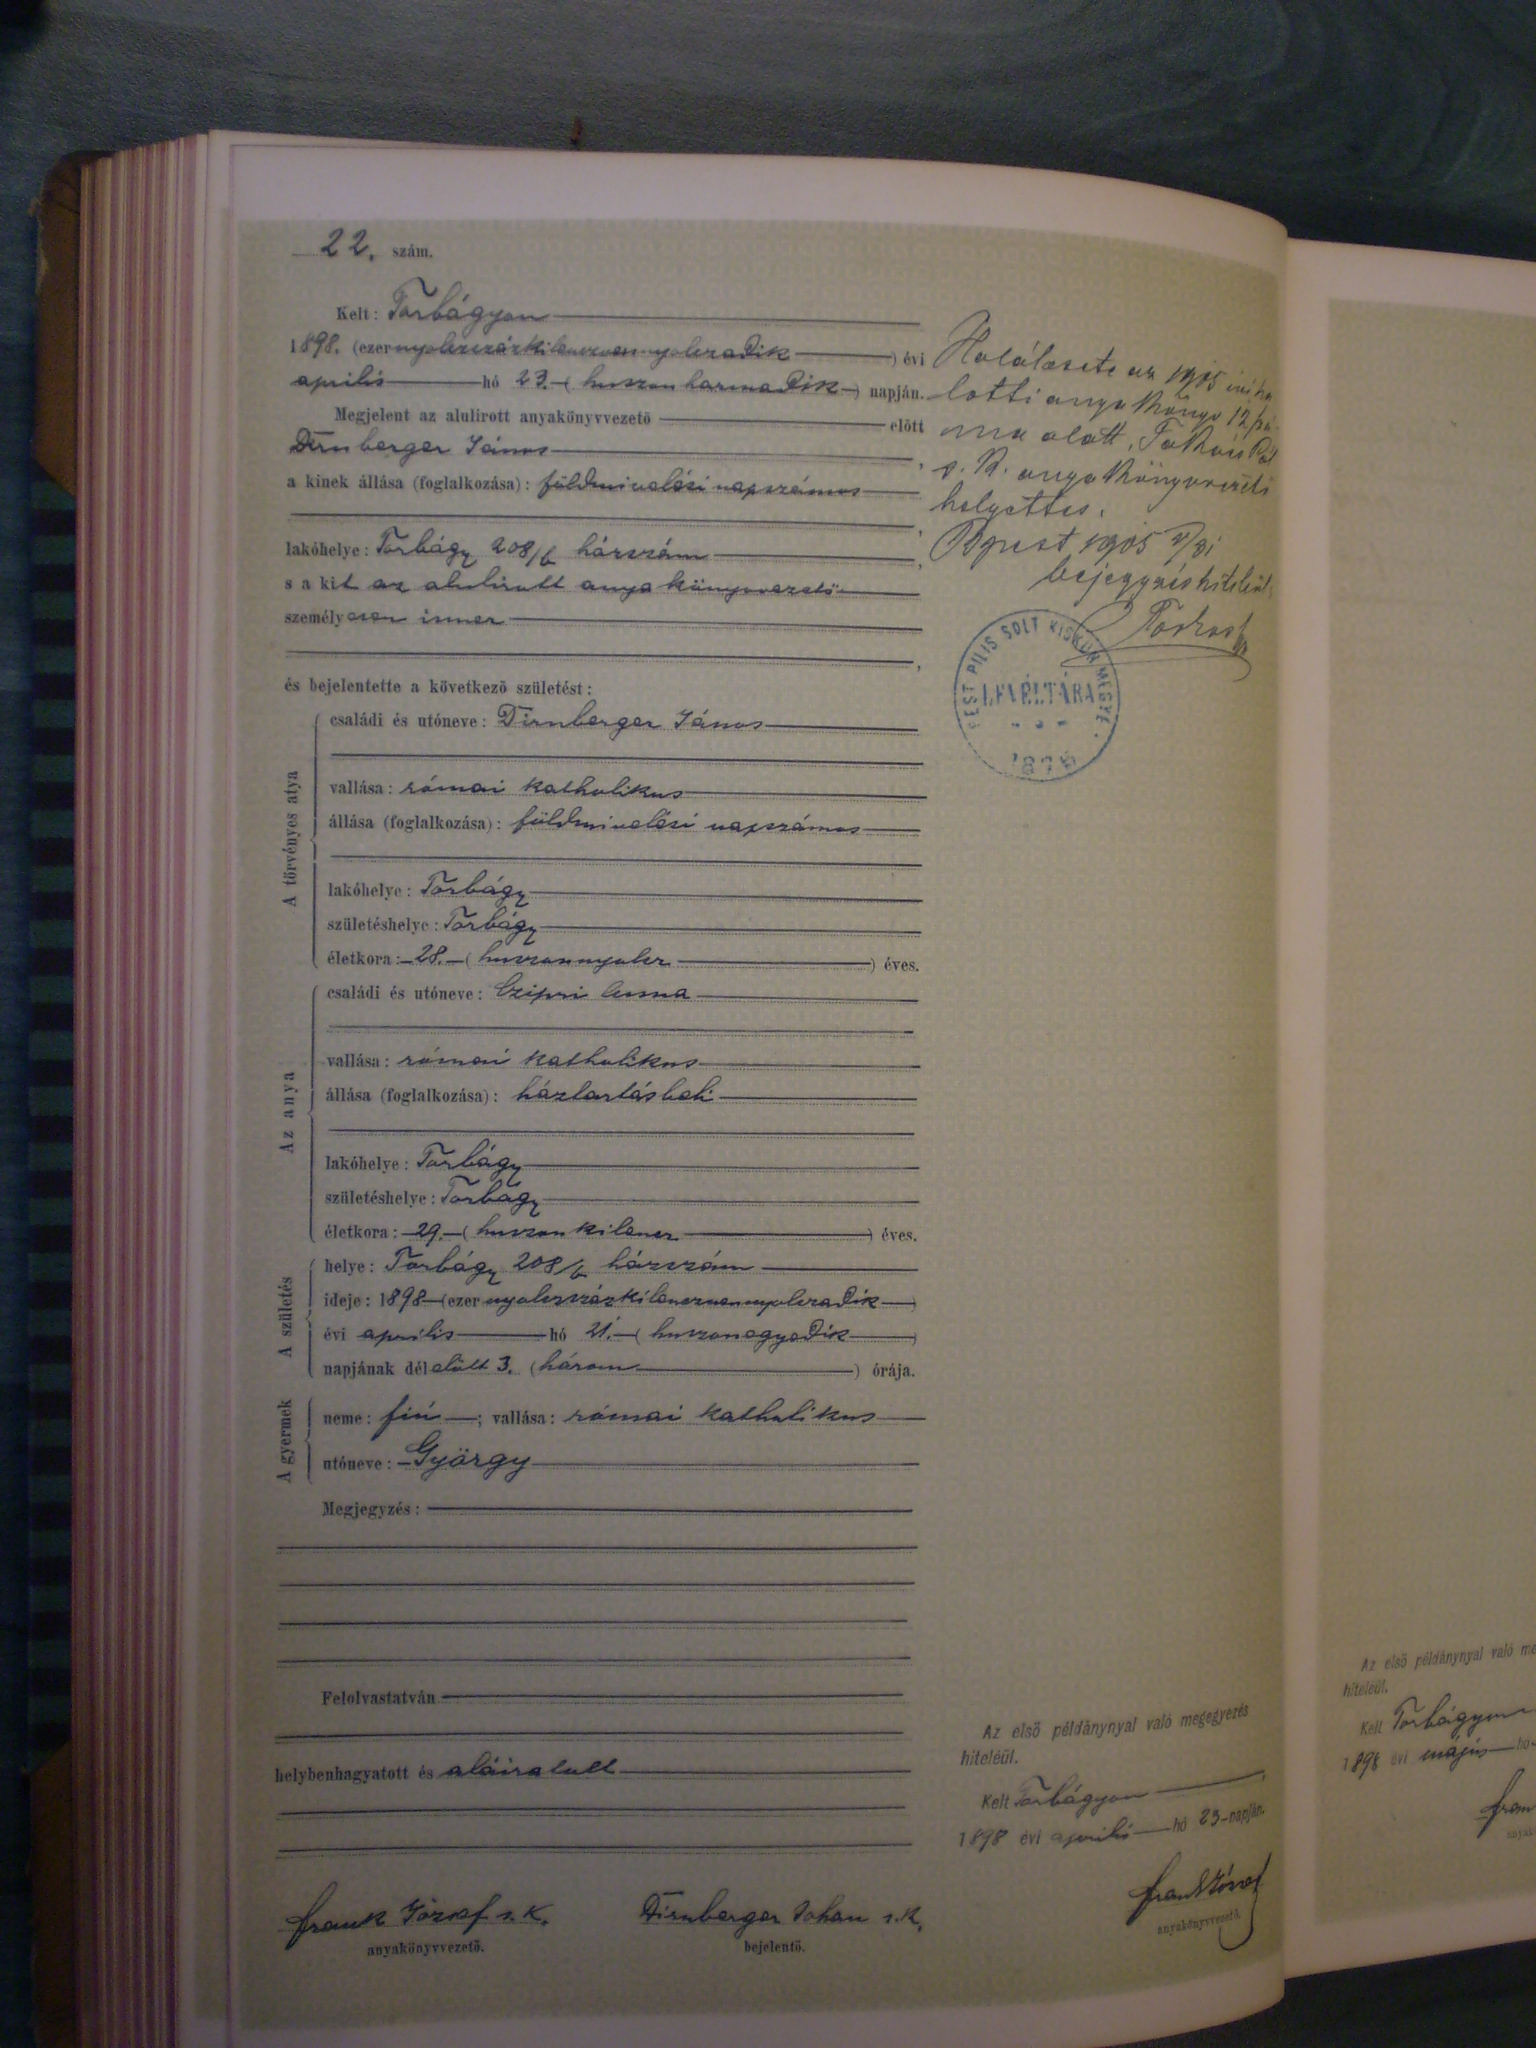 22. szám.
Kelt: Torbágyon
1898. (ezer nyolczszázkilenczvennyolczadik) évi
április hó 23. (huszonharmadik) napján.
Megjelent az alulirott anyakönyvvezető előtt
Dirnberger János,
a kinek állása (foglalkozása): földmivelési napszámos
,
lakóhelye: Torbágy 208/b házszám,
s a kit az alulirott anyakönyvvezető
személyesen ismer
,
és bejelentette a következő születést:
A törvényes atya
családi és utóneve: Dirnberger János
vallása: római katholikus
állása (foglalkozása): földmivelési napszámos
lakóhelye: Torbágy
születéshelye: Torbágy
életkora: 28. (huszonnyolcz) éves.
Az anya
családi és utóneve: Czipri Anna
vallása: római katholikus
állása (foglalkozása): háztartásbeli
lakóhelye: Torbágy
születéshelye: Torbágy
életkora: 29. (huszonkilencz) éves.
A születés
helye: Torbágy 208/b házszám
ideje: 1898 (ezer nyolczszázkilenczvennyolczadik)
évi április hó 21. (huszonegyedik)
napjának délelőtt 3. (három) órája.
A gyermek
neme: fiú; vallása: római katholikus
utóneve: György
Megjegyzés:
Felolvastatván
helybenhagyatott és aláiratott
Frank József s. k.
anyakönyvvezető.
Dirnberger Johan s. k.
bejelentő.
Halálesete az 1905 évi ha
lotti anyakönyv 12 szá
ma alatt. Pál
s. k. anyakönyvvezető
helyettes.
Bpest 1905
bejegyzés hiteléül:
PEST PILIS SOLT KISKUN MEGYE
LEVÉLTÁRA
Az első példánynyal való megegyezés
hiteléül.
Kelt Torbágyon
1898 évi április hó 23 napján.
Frank József
anyakönyvvezető.
Az első példánynyal való
hiteléül.
Kelt Torbágyon
1898 évi május hó